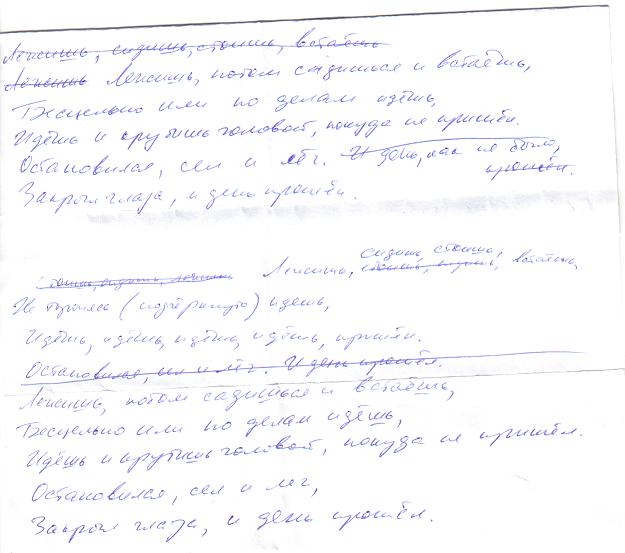 Лежишь, сидишь, стоишь, встаёшь
Лежишь Лежишь, потом садишься и встаёшь,
Бесцельно или по делам идёшь,
Идёшь и крутишь головой, покуда не пришёл.
Остановился, сел и лёг. И день, как не было,
прошёл.
Закрыл глаза, и день прошёл.
сидишь, стоишь,
Лежишь, стоишь, сидишь, встаёшь,
Не торопясь (подчёркнуто) идёшь,
Идёшь, идёшь, идёшь, идёшь, пришёл.
Остановился, сел и лёг. И день прошёл.
Лежишь, потом садишься и встаёшь,
Бесцельно или по делам идёшь,
Идёшь и крутишь головой, покуда не пришёл.
Остановился, сел и лёг,
Закрыл глаза, и день прошёл.